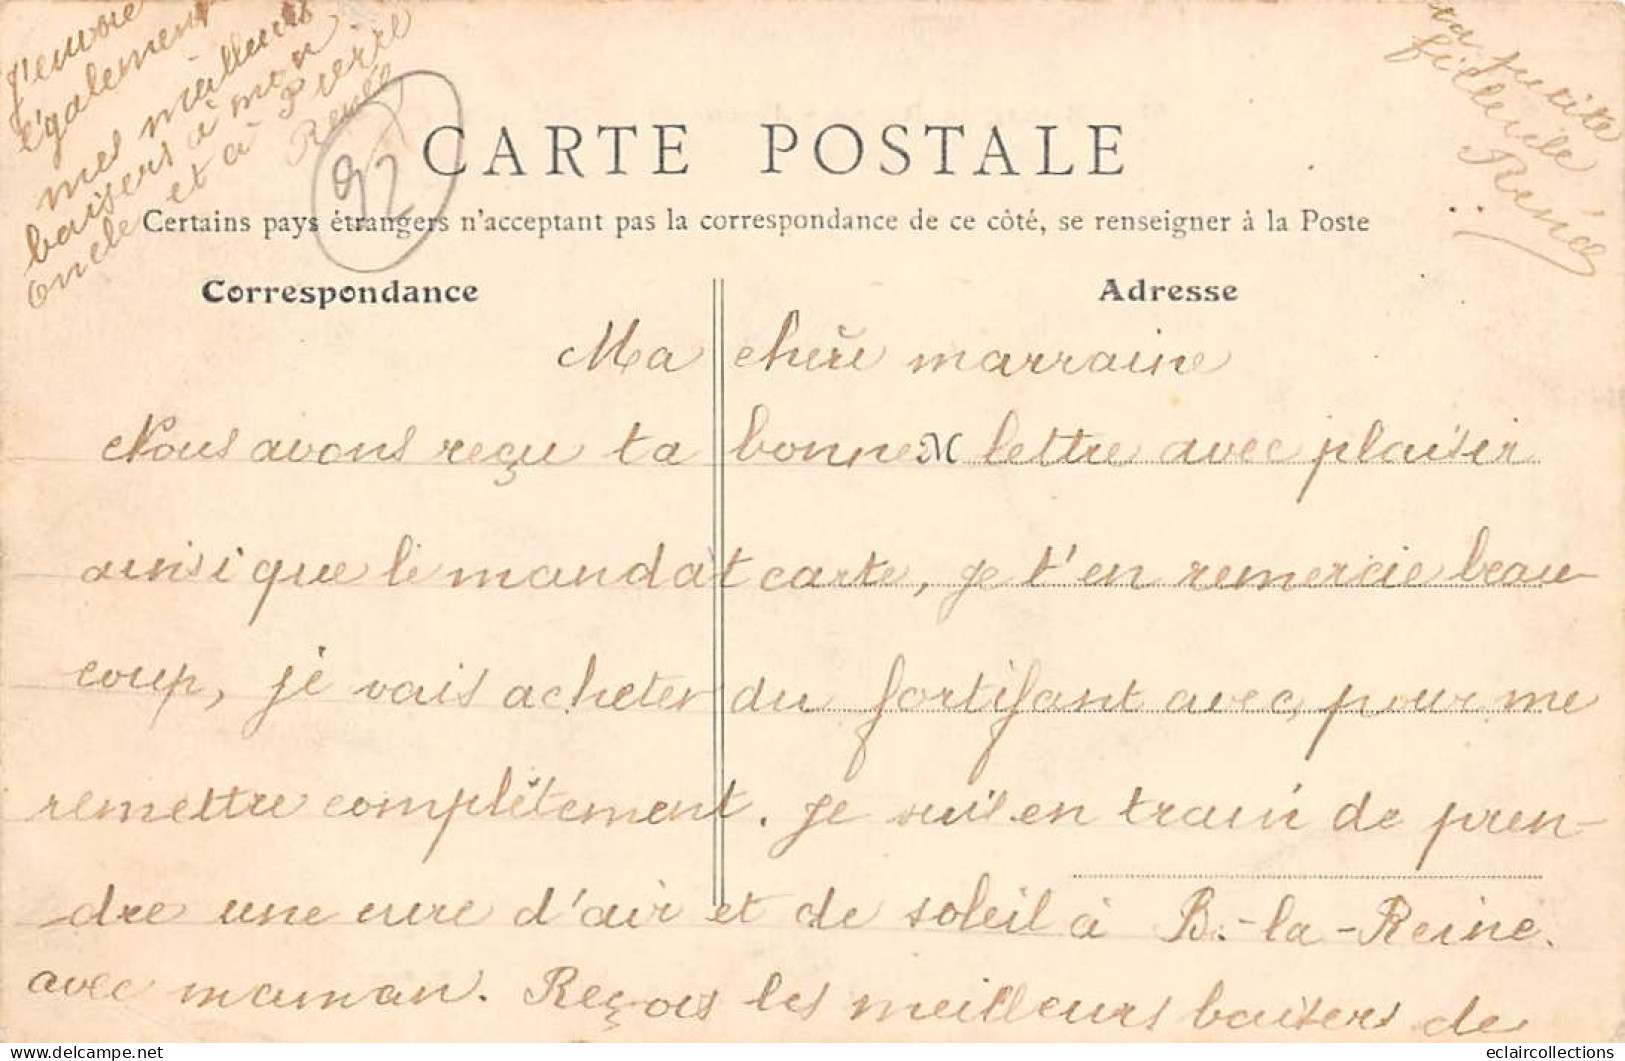 J'envoie
également
mes meilleurs
baisers à mon
oncle et à Pierre
Renée
92
CARTE POSTALE
Certains pays étrangers n'acceptant pas la correspondance de ce côté, se renseigner à la Poste
Correspondance
Adresse
Ma chère marraine
Nous avons reçu ta bonne lettre avec plaisir
ainsi que le mandat carte, je t'en remercie beau-
coup, je vais acheter du fortifant avec, pour me
remettre complètement. Je suis en train de pren-
dre une cure d'air et de soleil à B.-la-Reine.
avec maman. Reçois les meilleurs baisers de
ta petite
filleule
Renée
eclaircollections